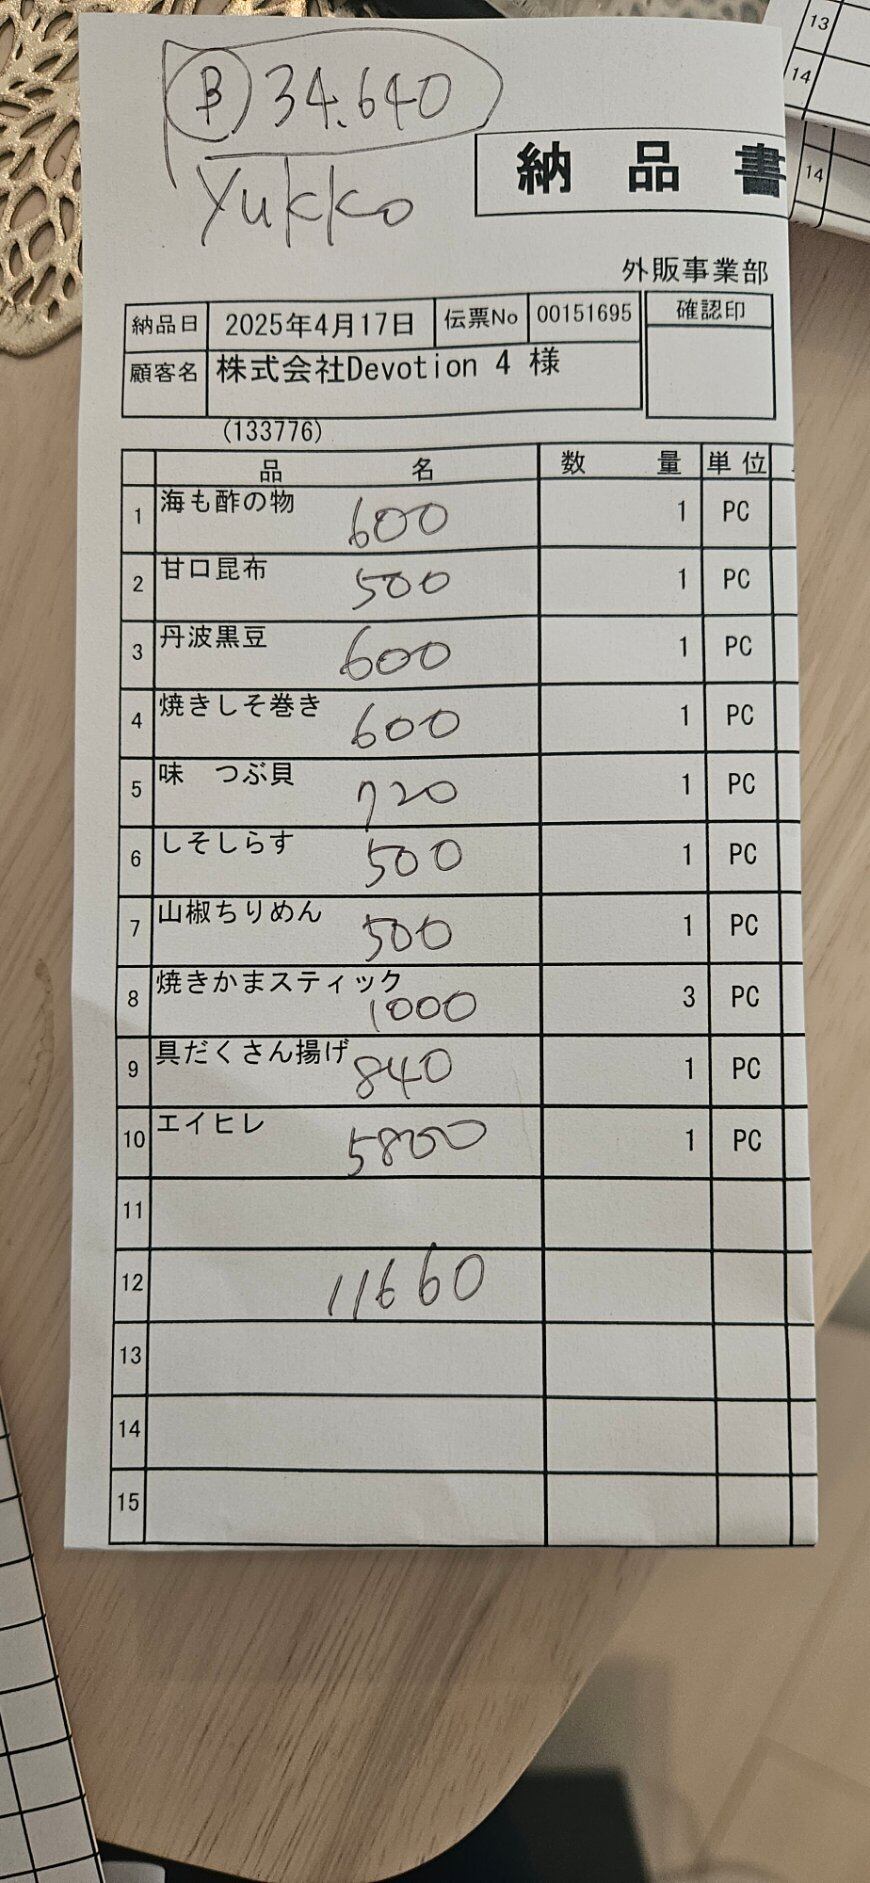 B 34.640
Yukko
納品書
外販事業部
納品日 2025年4月17日 伝票No 00151695 確認印
顧客名 株式会社Devotion 4 様
(133776)
品名 数量 単位
1 海も酢の物 600 1 PC
2 甘口昆布 500 1 PC
3 丹波黒豆 600 1 PC
4 焼きしそ巻き 600 1 PC
5 味 つぶ貝 720 1 PC
6 しそしらす 500 1 PC
7 山椒ちりめん 500 1 PC
8 焼きかまスティック 1000 3 PC
9 具だくさん揚げ 840 1 PC
10 エイヒレ 5800 1 PC
11
12 11660
13
14
15
13
14
14